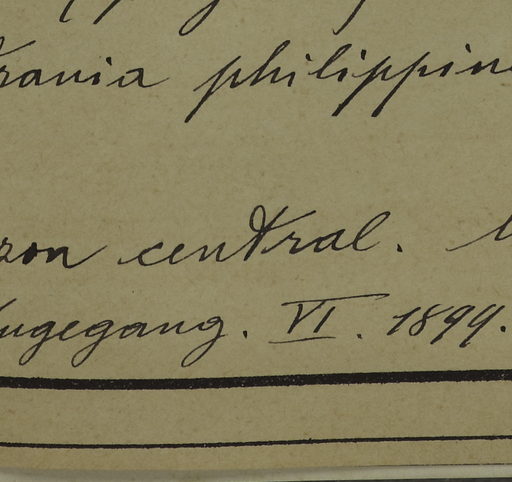 rania philippin
zon central.
ugegang. VI. 1899.